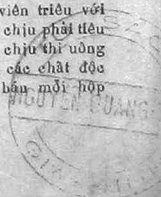 viên triều với
chịu phải tiêu
chịu thi uông
các chất độc
bán mỗi hộp
NGUYEN QUANG